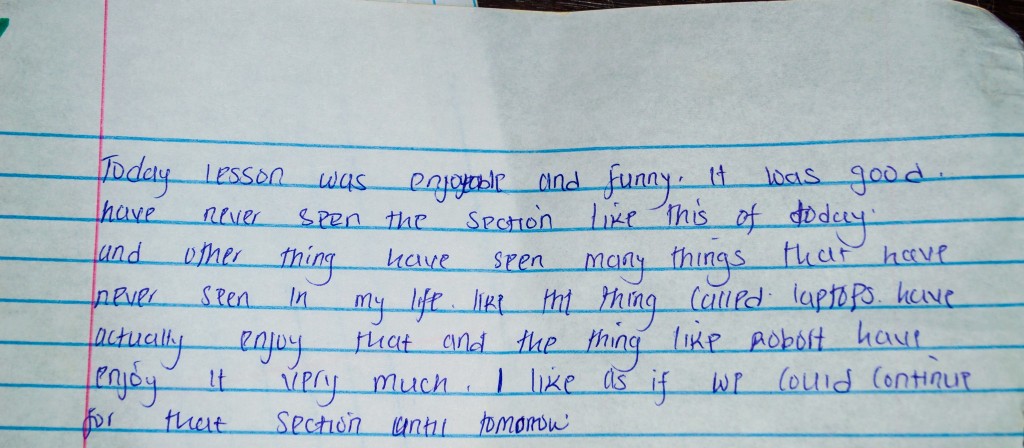 Today lesson was enjoyable and funny. It was good.
have never seen the section like this of today.
and other thing have seen many things that have
never seen in my life. like tht thing called. laptops. have
actually enjoy that and the thing like Robort have
enjoy it very much. I like as if we could continue
for that section until tomorrow.